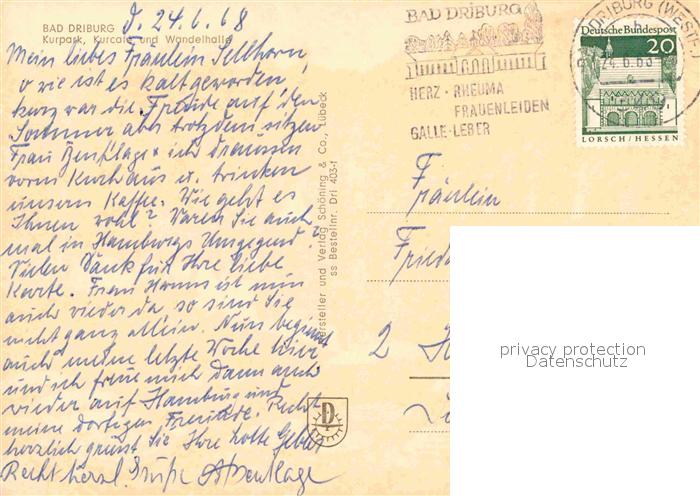 D. 24.6.68
BAD DRIBURG
Kurpark, Kurcafe und Wandelhalle
Mein liebes Fräulein Sellhorn,
o wie ist es kalt geworden,
kurz war die Freude auf den
Sommer aber trotzdem sitzen
Frau Henklage + ich draussen
vorm Kurhaus u. trinken
unsern Kaffee. Wie geht es
Ihnen wohl? Waren Sie auch
mal in Hamburgs Umgegend?
Vielen Dank für Ihre liebe
Karte. Frau Hanns ist nun
auch wieder da, so sind Sie
nicht ganz allein. Nun beginnt
auch meine letzte Woche hier
und ich freue mich dann auch
wieder auf Hamburg und
meine dortigen Freunde. Recht
herzlich grüsst Sie Ihre
Recht herzl. Grüße
Hersteller und Verlag Schöning & Co., Lübeck
ss Bestellnr. Dri 403-1
BAD DRIBURG
HERZ · RHEUMA
FRAUENLEIDEN
GALLE · LEBER
DRIBURG (WESTF)
24.6.68
Deutsche Bundespost
20
LORSCH/HESSEN
Fräulein
Fried
2
privacy protection
Datenschutz